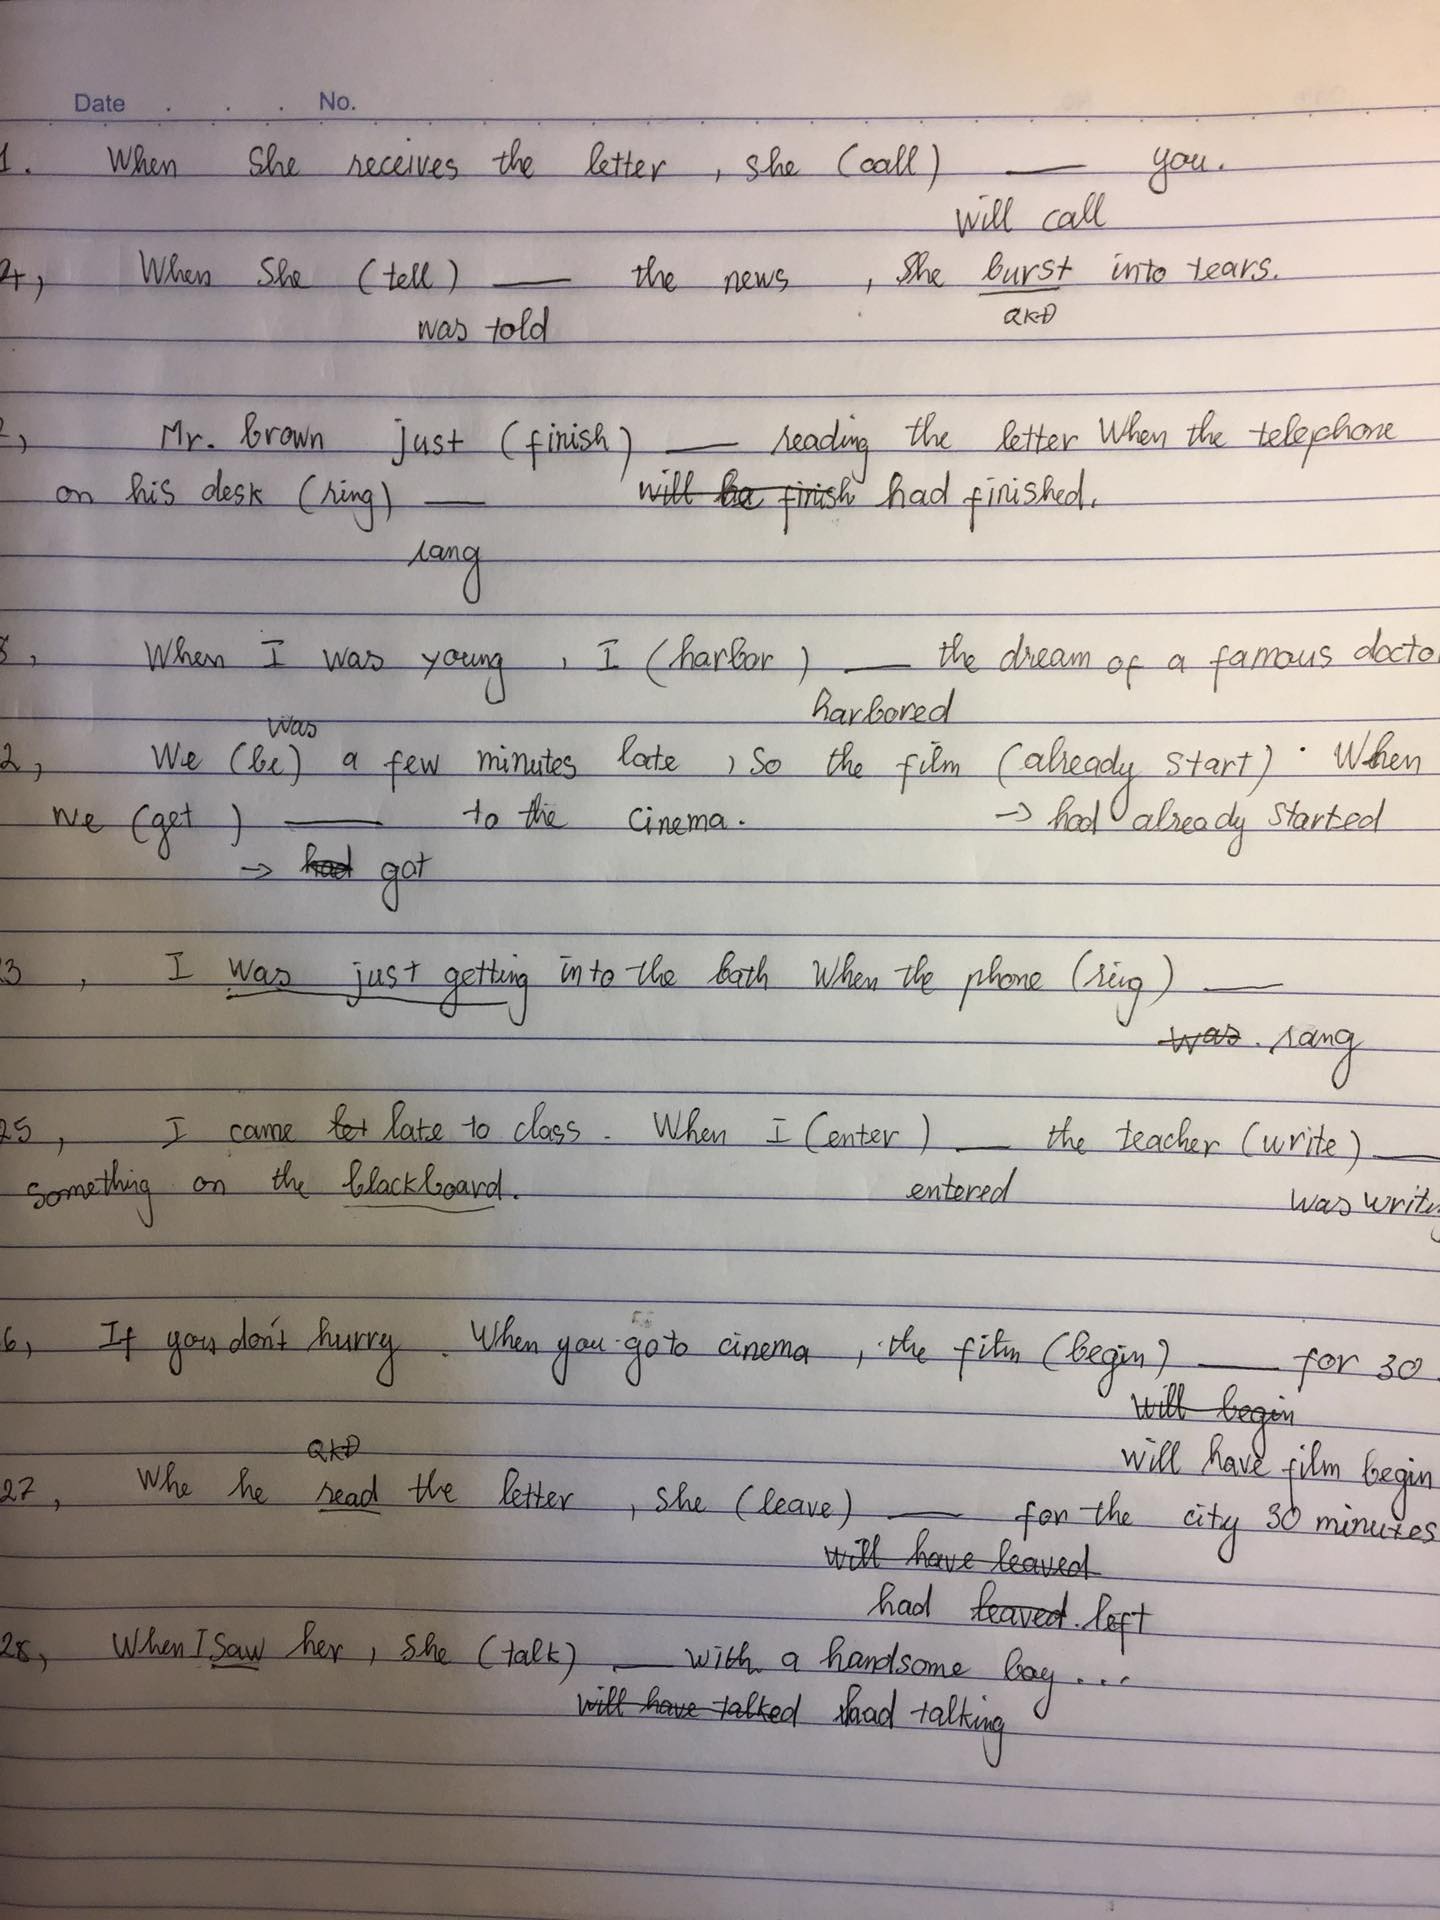 Date . . . No.
1. When She receives the letter , she (call) __ you.
will call
4, When She (tell) __ the news , She burst into tears.
was told QKĐ
, Mr. brown just (finish) __ reading the letter When the telephone
on his desk (ring) __ will be finish had finished.
rang
8, When I was young , I (harbor) __ the dream of a famous docto
harbored
was
2, We (be) a few minutes late , So the film (already start) . When
we (get ) __ to the cinema. → had already started
→ had got
3 , I was just getting into the bath When the phone (ring) __
was . rang
25 , I came let late to class . When I (enter ) __ the teacher (write) __
something on the blackboard. entered was writing
6, If you don't hurry . When you go to cinema , the film (begin) __ for 30.
will begin
will have film begin
QKĐ
27, Whe he read the letter , she (leave) __ for the city 30 minutes
will have leaved
had leaved. left
28, When I saw her , she (talk) __ with a handsome boy ...
will have talked had talking